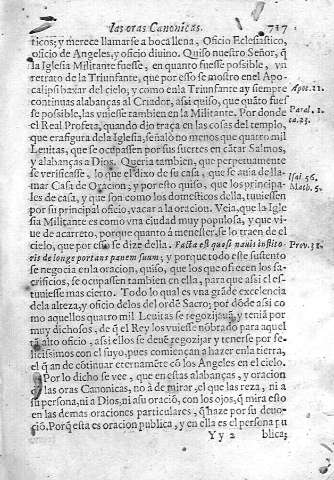 las oras Canonicas. 717
ticos; y merece llamarse a boca llena, Oficio Eclesiastico,
oficio de Angeles, y oficio diuino. Quiso nuestro Señor, q̃
la Iglesia Militante fuesse, en quanto fuesse possible, vn
retrato de la Triunfante, que por esso se mostro en el Apo-
calipsi baxar del cielo, y como en la Triunfante ay siempre Apoc. 21.
continuas alabanças al Criador, assi quiso, que quãto fues
se possible, las vuiesse tambien en la Militante. Por donde Paral. 1.
el Real Profeta, quando dio traça en las cosas del templo, ca. 23.
que era figura de la Iglesia, señalò no menos que quatro mil
Leuitas, que se ocupassen por sus suertes en cãtar Salmos,
y alabanças a Dios. Queria tambien, que perpetuamente
se verificasse, lo que el dixo de su casa, que se auia de lla-
mar Casa de Oracion, y por esto quiso, que los principa- Isai. 56.
les de casa, y que son como los domesticos della, tuuiessen Math. 5.
por su principal oficio, vacar a la oracion. Veia, que la Igle
sia Militante es como vna ciudad muy populosa, y que viue
de acarreto, porque quanto à menester, se lo traen del
cielo, que por esso se dize della. Facta est quasi nauis instito- Prov. 31.
ris de longe portans panem suum; y porque todo este sustento
se negocia en la oracion, quiso, que los que ofrecen los sa-
crificios, se ocupassen tambien en ella, para que assi el es-
tuuiesse mas cierto. Todo lo qual es vna grãde excelencia
de la alteza, y oficio de los del ordẽ Sacro; por dõde assi co
mo aquellos quatro mil Leuitas se regozijauã, y tenia por
muy dichosos, de q̃ el Rey los vuiesse nõbrado para aquel
tã alto oficio, assi ellos se deuẽ regozijar y tenerse por fe-
licissimos con el suyo, pues comiençan a hazer en la tierra,
el q̃ an de cõtinuar eternamẽte cõ los Angeles en el cielo.
Por lo dicho se vee, que en estas alabanças, y oracion
de las oras Canonicas, no à de mirar, el que las reza, ni a
su persona, ni a Dios, ni a su oraciõ, con los ojos, q̃ mira esto
en las demas oraciones particulares, q̃ haze por su deuo-
ciõ. Porq̃ esta es oracion publica, y en ella es el persona pu
Y y 2 blica;